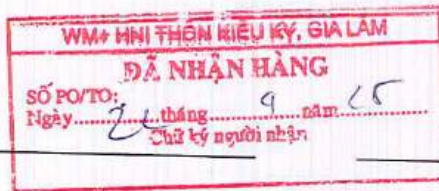 WM+ HNI THÔN KIÊU KỴ, GIA LÂM
ĐÃ NHẬN HÀNG
SỐ PO/TO:
Ngày.......... tháng 9 năm 25
Chữ ký người nhận